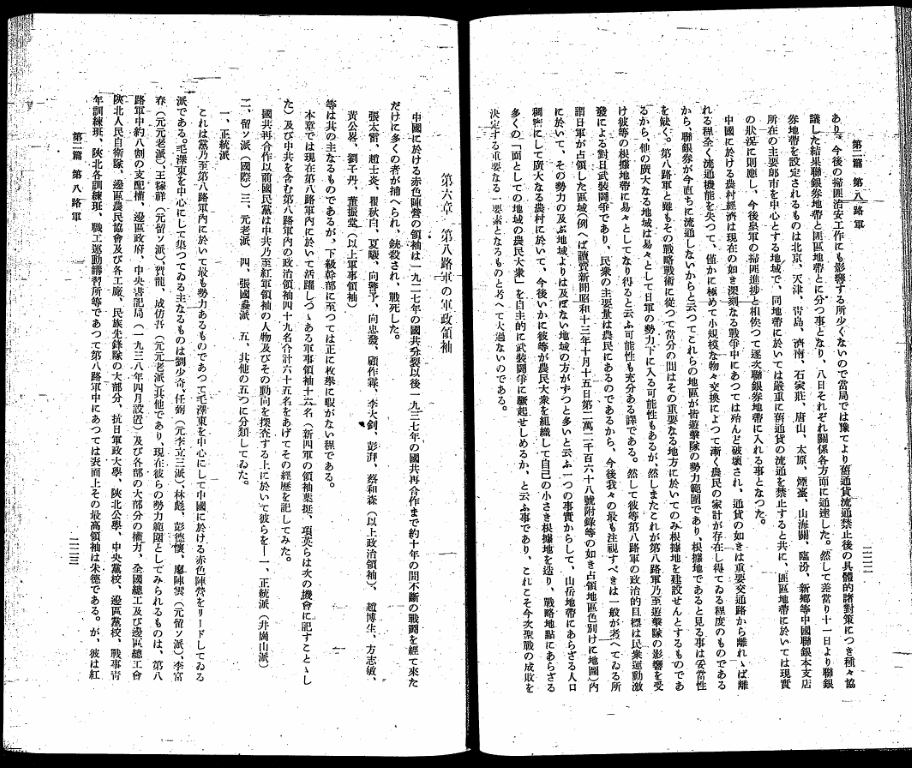 第二篇　第八路軍
二二二
あり、今後の掃匪治安工作にも影響する所少くないので當局では豫てより舊通貨流通禁止後の具體的諸對策につき種々協
議した結果聯銀券地帶と匪區地帶とに分つ事となり、八日それぞれ關係各方面に通達した。然して差當り十一日より聯銀
券地帶を設定されるものは北京、天津、青島、濟南、石家莊、唐山、太原、煙臺、山海關、臨汾、新鄕等中國聯銀本支店
所在の主要都市を中心とする地域で、同地帶に於いては嚴重に舊通貨の流通を禁止すると共に、匪區地帶に於いては現實
の狀況に則應し、今後皇軍の掃匪進捗と相俟つて逐次聯銀券地帶に入れる事となつた。
中國に於ける農村經濟は現在の如き深刻なる戰爭中にあつては殆んど破壞され、通貨の如きは重要交通路から離れゝば離
れる程全く流通機能を失つて、僅かに極めて小規模な物々交換によつて漸く農民の家計が存在し得てゐる程度のものである
から、聯銀券が今直ちに流通しないからと云つてこれらの地區が皆遊擊隊の勢力範圍であり、根據地であると見る事は妥當性
を缺く。第八路軍と雖もその戰略戰術に從つて當分の間はその重要なる地方に於いてのみ根據地を建設せんとするものであ
るから、他の廣大なる地域は易々として日軍の勢力下に入る可能性もあるが、然しまたこれが第八路軍乃至遊擊隊の影響を受
け彼等の根據地帶に易々としてなり得ると云ふ可能性も充分ある譯である。然して彼等第八路軍の政治的目標は民衆運動激
發による對日武裝鬪爭であり、民衆の主要量は農民にあるのであるから、今後我々の最も注視すべきは一般が考へてゐる所
謂日軍が占領した區域（例へば讀賣新聞昭和十三年十月十五日第二萬二千百六十八號附錄等の如き占領地區色別けに地圖）內
に於いて、その勢力の及ぶ地域よりは及ばない地域の方がずつと多いと云ふ一つの事實からして、山岳地帶にあらざる人口
稠密にして廣大なる農村に於いて、今後いかに彼等が農民大衆を組織して自己の小さき根據地を造り、戰略地點にあらざる
多くの「面としての地域の農民大衆」を自主的に武裝鬪爭に驅起せしめるか、と云ふ事であり、これこそ今次聖戰の成敗を
決定する重要なる一要素となるものと考へて大過ないのである。
第六章　第八路軍の軍政領袖
中國に於ける赤色陣營の領袖は一九二七年の國共分裂以後一九三七年の國共再合作まで約十年の間不斷の戰鬪を經て來た
だけに多くの者が捕へられ、銃殺され、戰死した。
張太雷、趙士炎、瞿秋白、夏曦、向警予、向忠發、顧作霖、李大釗、彭湃、蔡和森（以上政治領袖）、趙博生、方志敏、
黃公畧、劉子丹、董振堂（以上軍事領袖）
等は其の主なるものであるが、下級幹部に至つては正に枚擧に暇がない程である。
本章では現在第八路軍內に於いて活躍しつゝある軍事領袖十六名（新四軍の領袖葉挺、項英らは次の機會に記すことゝし
た）及び中共を含む第八路軍內の政治領袖四十九名合計六十五名をあげてその經歷を記してみた。
國共再合作以前國民黨は中共乃至紅軍領袖の人物及びその動向を探査する上に於いて彼らを―一、正統派（井崗山派）
二、留ソ派（國際）三、元老派　四、張國燾派　五、其他の五つに分類してゐた。
一、正統派
これは黨乃至第八路軍內に於いて最も勢力あるものであつて毛澤東を中心にして中國に於ける赤色陣營をリードしてゐる
派である。毛澤東を中心にして集つてゐる主なるものは劉少奇、任弼（元李立三派）、林彪、彭德懷、廖陳雲（元留ソ派）、李富
春（元元老派）、王稼祥（元留ソ派）、賀龍、成仿吾（元元老派）其他であり、現在彼らの勢力範圍としてみられるものは、第八
路軍中約八割の支配權、邊區政府、中央書記局（一九三八年四月設消）及び各部の大部分の權力、全國總工及び邊區總工會
陝北人民自衞隊、邊區農民協會及び各工廠、民族先鋒隊の大部分、抗日軍政大學、陝北公學、中央黨校、邊區黨校、戰事靑
年訓練班、陝北各訓練班、職工運動講習所等であつて第八路軍中にあつては表面上その最高領袖は朱德である。が、彼は紅
第二篇　第八路軍
二二三